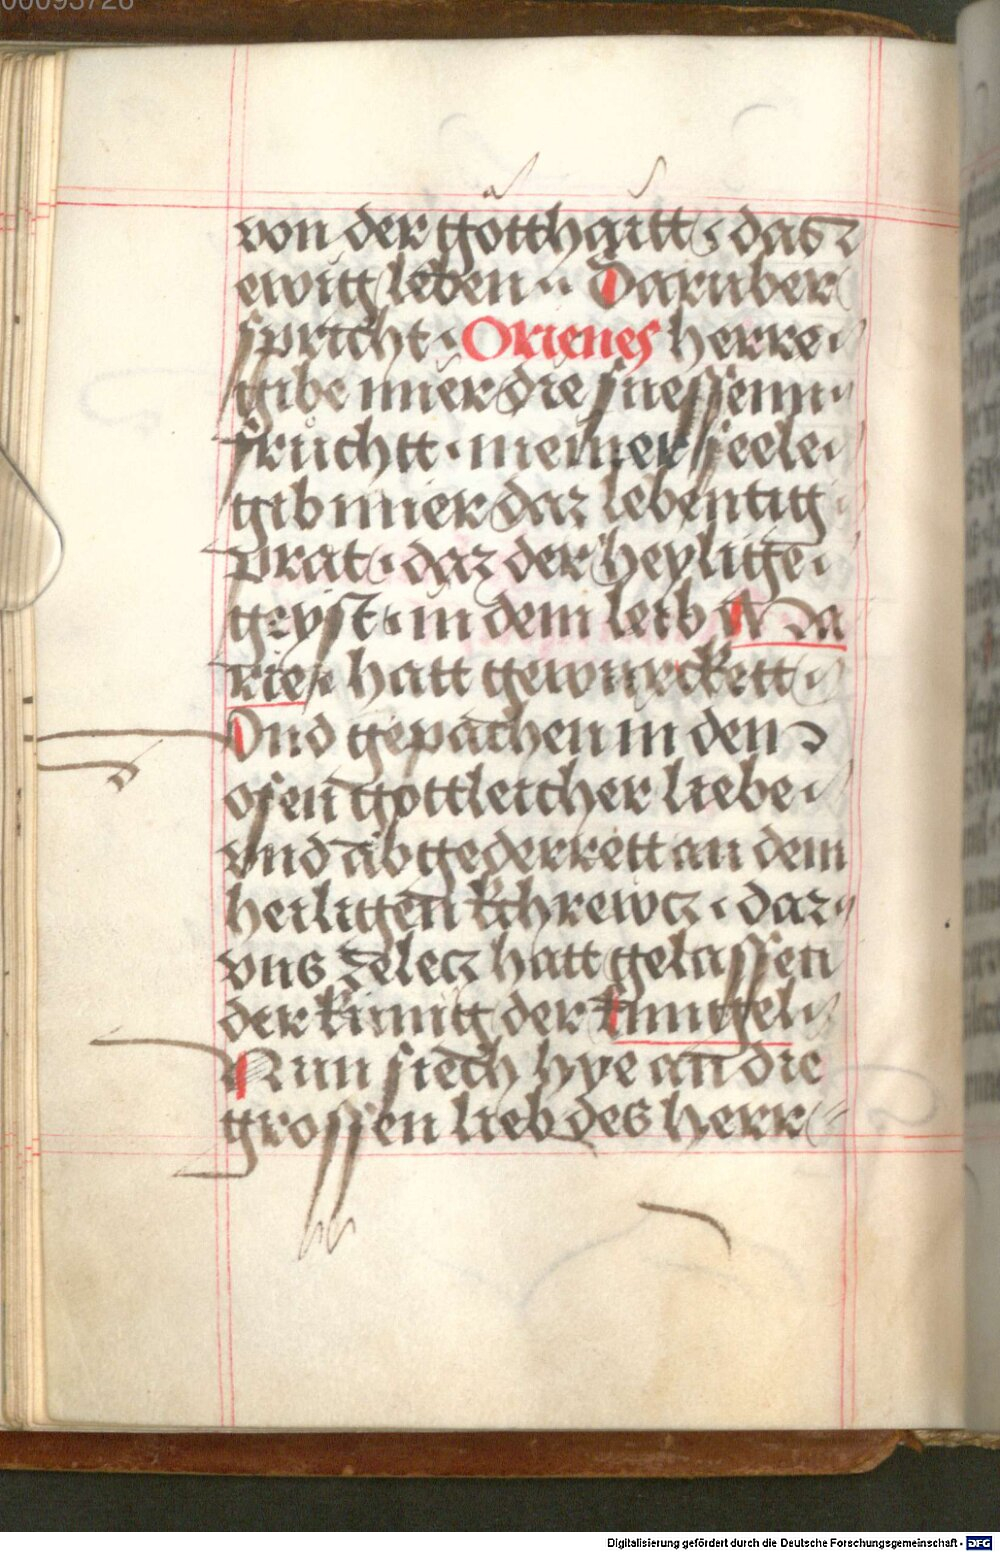 00093726
von der götthaitt · das
ewig leben ·· Daruber
spricht · Orienes herre ·
gibe mier die suessenn ·
fruchtt · meiner seele ·
gib mier daz lebentig
prat · daz der heylige ·
geyst · in dem leib Ma
rie · hatt gewurckett ·
Und gepachen in den
ofen gottleicher liebe ·
vnd abgederrett an dem
heiligen khrewcz · daz ·
vns zelecz hatt gelassen
der kunig der hymel ·
Nun siech hye an die
grossen lieb des herr
Digitalisierung gefördert durch die Deutsche Forschungsgemeinschaft - DFG